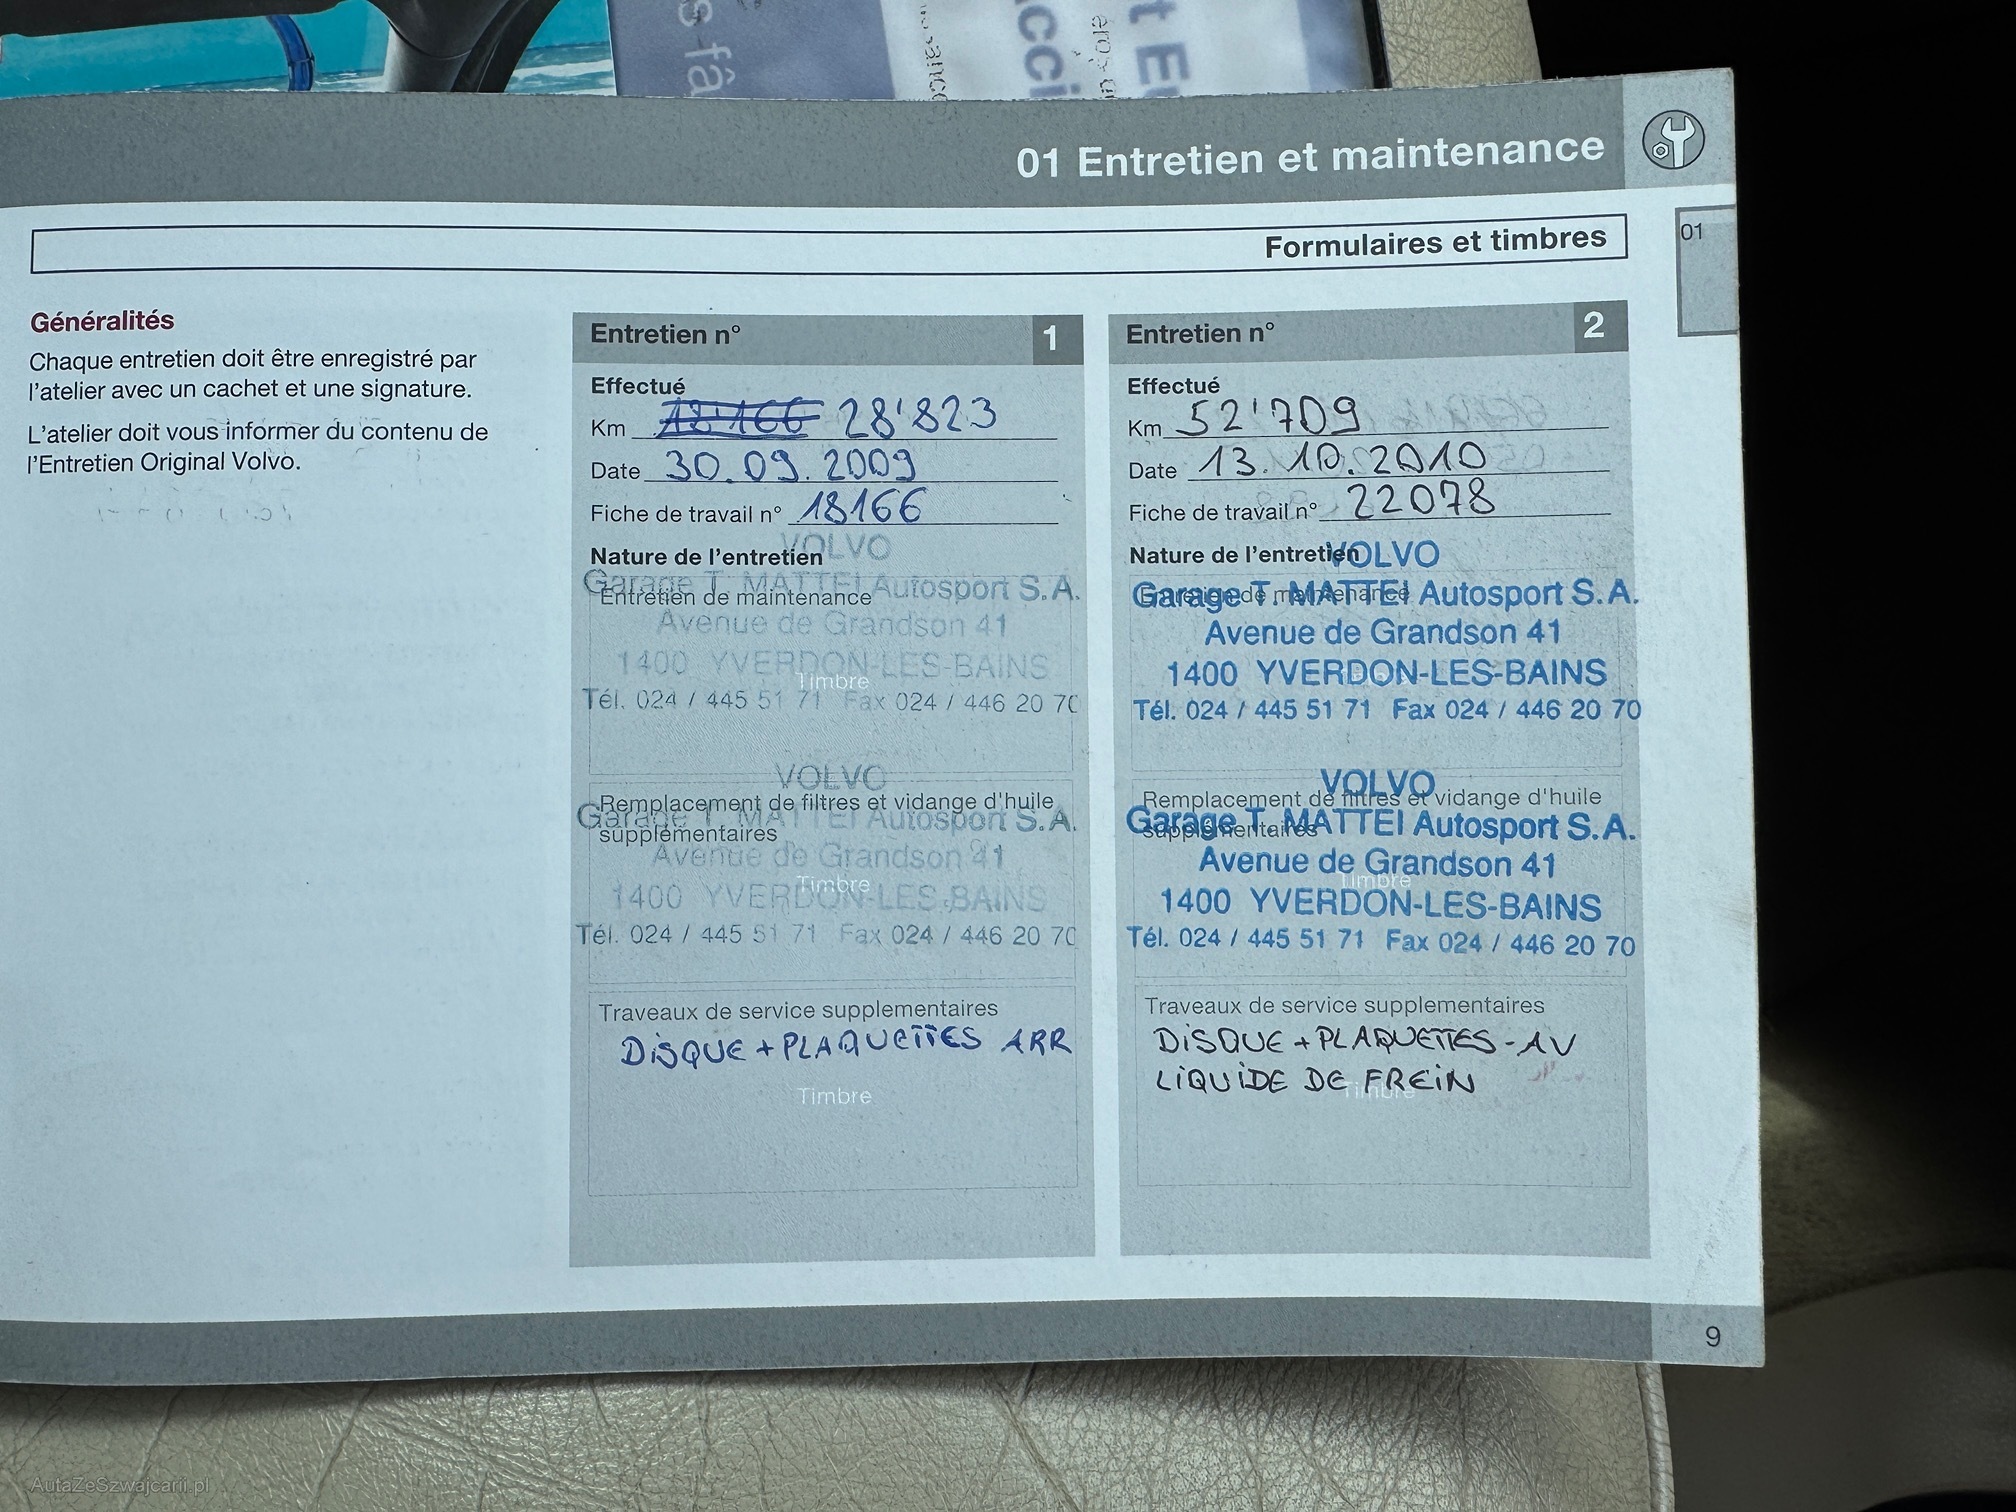 01 Entretien et maintenance
Formulaires et timbres
01
Généralités
Chaque entretien doit être enregistré par
l'atelier avec un cachet et une signature.
L'atelier doit vous informer du contenu de
l'Entretien Original Volvo.
Entretien n° 1
Effectué
Km 18'166 28'823
Date 30.09.2009
Fiche de travail n° 18166
Nature de l'entretien
VOLVO
Garage T. MATTEI Autosport S.A.
Entretien de maintenance
Avenue de Grandson 41
1400 YVERDON-LES-BAINS
Timbre
Tél. 024 / 445 51 71 Fax 024 / 446 20 70
VOLVO
Remplacement de filtres et vidange d'huile
Garage T. MATTEI Autosport S.A.
supplémentaires
Avenue de Grandson 41
Timbre
1400 YVERDON-LES-BAINS
Tél. 024 / 445 51 71 Fax 024 / 446 20 70
Traveaux de service supplementaires
DISQUE + PLAQUETTES ARR
Timbre
Entretien n° 2
Effectué
Km 52'709
Date 13.10.2010
Fiche de travail n° 22078
Nature de l'entretien
VOLVO
Garage T. MATTEI Autosport S.A.
Entretien de maintenance
Avenue de Grandson 41
1400 YVERDON-LES-BAINS
Tél. 024 / 445 51 71 Fax 024 / 446 20 70
VOLVO
Remplacement de filtres et vidange d'huile
Garage T. MATTEI Autosport S.A.
supplémentaires
Avenue de Grandson 41
Timbre
1400 YVERDON-LES-BAINS
Tél. 024 / 445 51 71 Fax 024 / 446 20 70
Traveaux de service supplementaires
DISQUE + PLAQUETTES - AV
LIQUIDE DE FREIN
Timbre
9
AutaZeSzwajcarii.pl